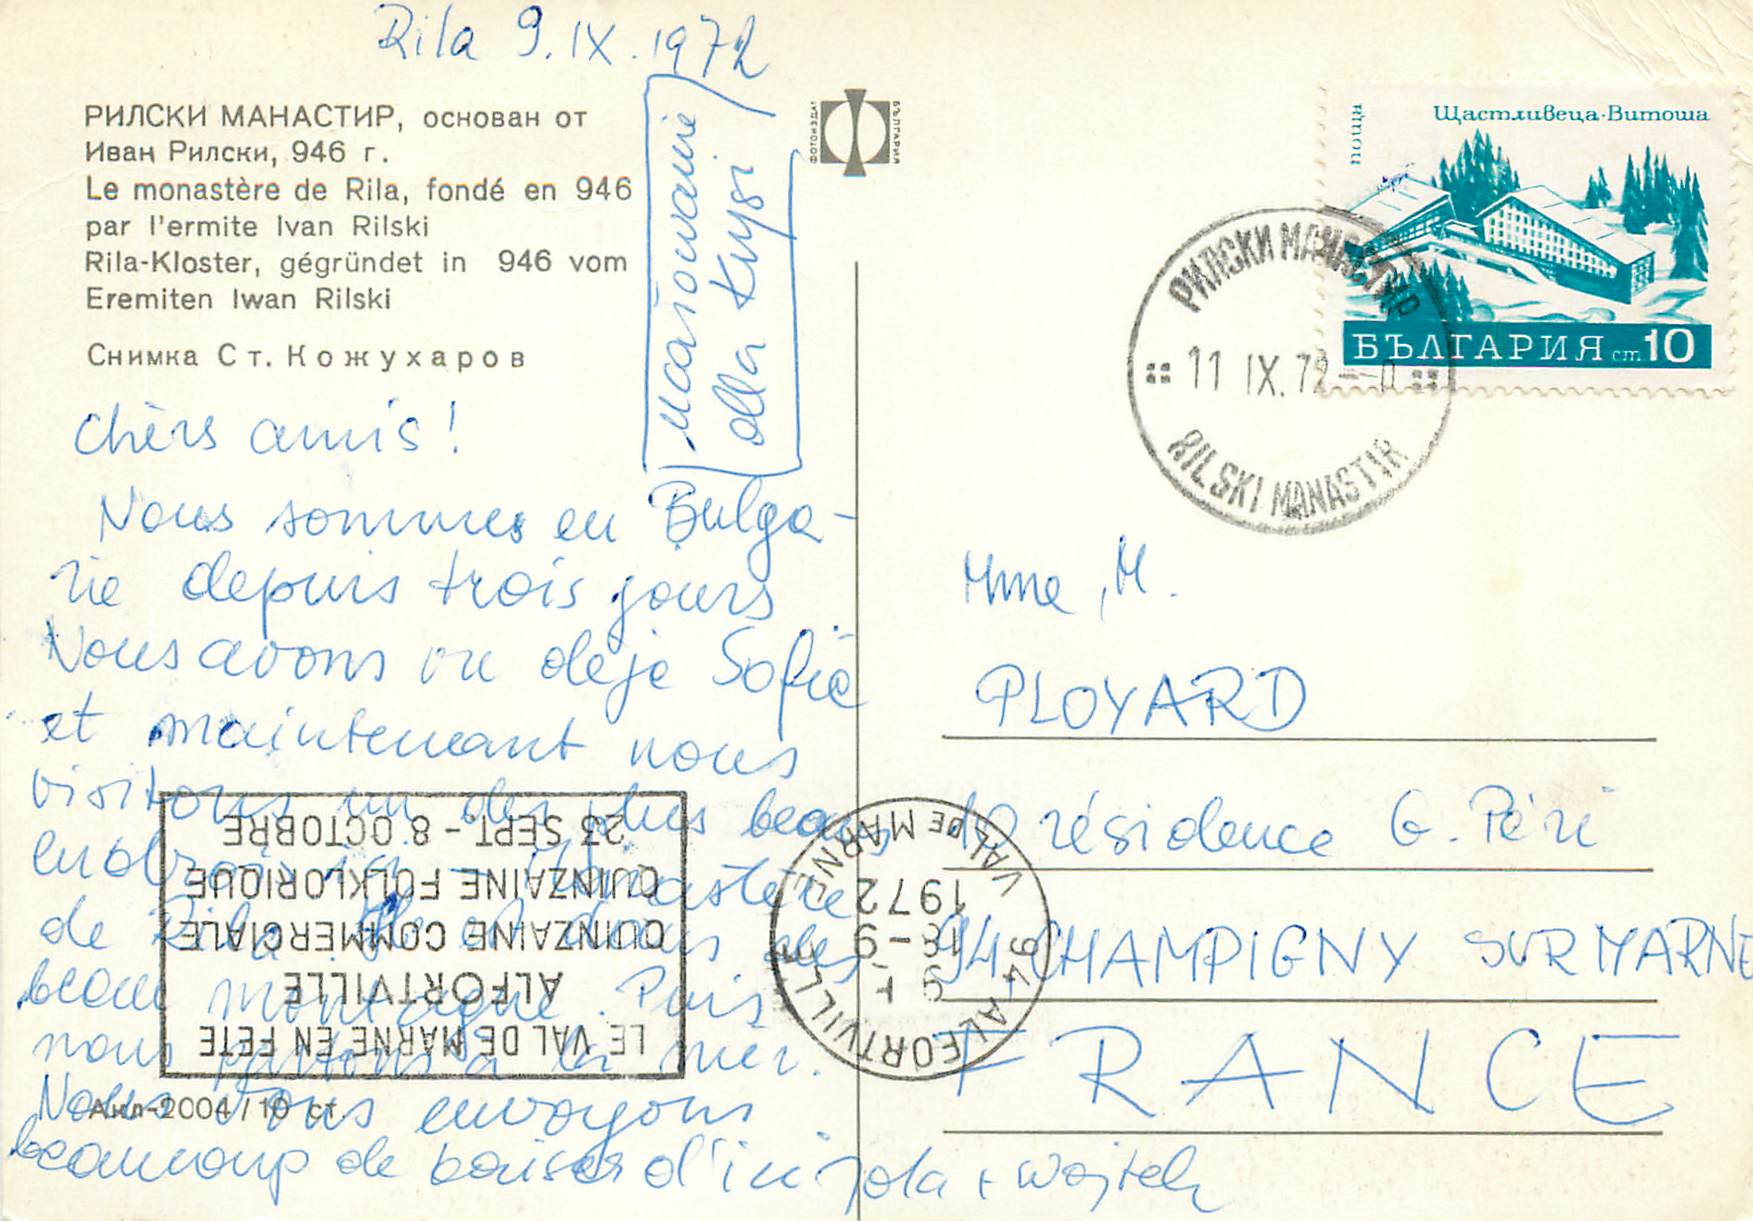 Rila 9.IX.1972
РИЛСКИ МАНАСТИР, основан от
Иван Рилски, 946 г.
Le monastère de Rila, fondé en 946
par l'ermite Ivan Rilski
Rila-Kloster, gégründet in 946 vom
Eremiten Iwan Rilski
Снимка Ст. Кожухаров
malowanie
dla Krysi
ФОТОИЗДАТ
БЪЛГАРИЯ
Chèrs amis!
Nous sommes en Bulga-
rie depuis trois jours
Nous avons vu déjè Sofie
et maintenant nous
visitons un des plus beaux
endroits
de Rila
beau montagne. Puis
nous partons à la mer.
Nous vous envoyons
beaucoup de baiser d'ici Jola + Wojtek
Анл-2004/10 ст.
поща
Щастливеца-Витоша
БЪЛГАРИЯ ст 10
РИЛСКИ МАНАСТИР
11 IX.72
RILSKI MANASTIR
Mme, M.
PLOYARD
10 résidence G. Péri
94 CHAMPIGNY SUR MARNE
FRANCE
LE VAL DE MARNE EN FETE
ALFORTVILLE
QUINZAINE COMMERCIALE
QUINZAINE FOLKLORIQUE
23 SEPT - 8 OCTOBRE
94 ALFORTVILLE
18-9
1972
VAL DE MARNE